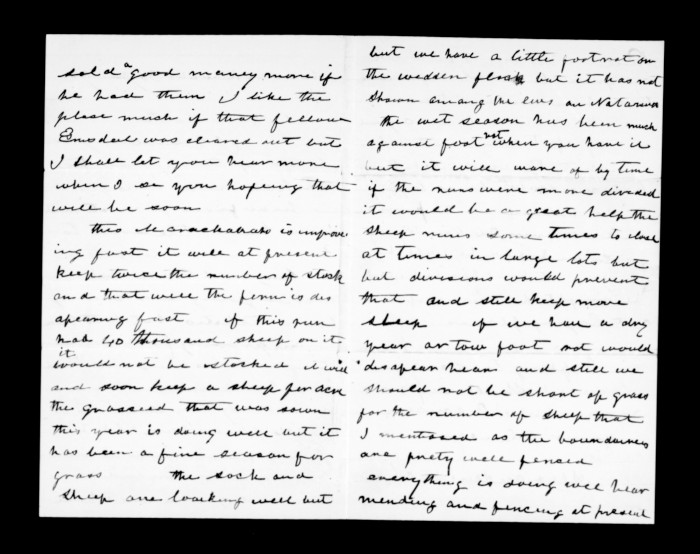 sold a good maney more if
he had them I like the
place much if that fellow
was cleared out but
I shall let you hear more
when I se you hopeing that
will be soon
this Marackakaho is improve
ing fast it will at present
keep twice the number of stock
and that well the fern is dis
apearing fast if this run
had 40 thousand sheep on it
it would not be stocked it will
and soon keep a sheep per acre
the grasseed that was sown
this year is doing well but it
has been a fine season for
grass the sock and
sheep are loocking well but
but we have a little footrot on
the wedder flock but it has not
shown among the ews on
the wet season has been much
against foot rot when you have it
but it will ware of by time
if the runs were more divided
it would be a great help the
sheep runs some times to close
at times in large lots but
but divisions would prevent
that and still keep more
sheep if we had a dry
year or tow foot rot would
disapear hear and still we
should not be short of grass
for the number of sheep that
I mentosed as the boundareis
are prety well fenced
everything is doing well hear
mending and fencing at present